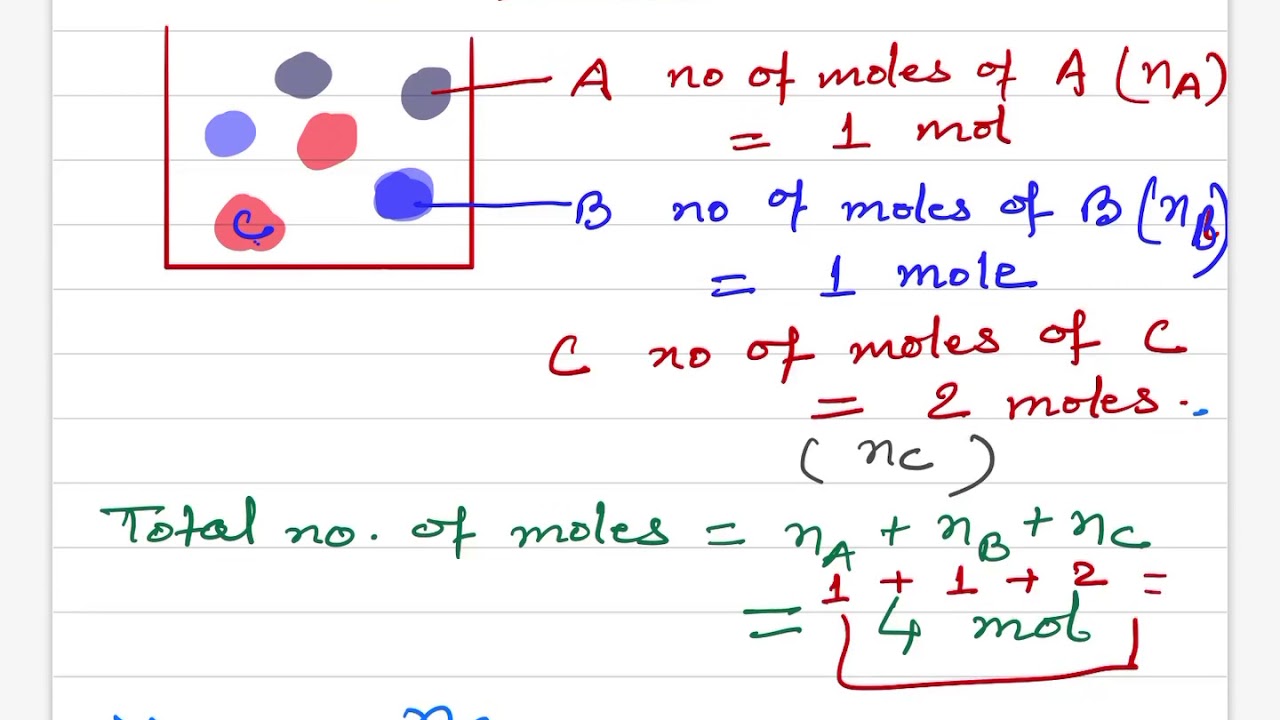 A no of moles of A (nA)
= 1 mol
B no of moles of B (nB)
= 1 mole
C
C no of moles of C
= 2 moles.
(nC)
Total no. of moles = nA + nB + nC
1 + 1 + 2 =
= 4 mol